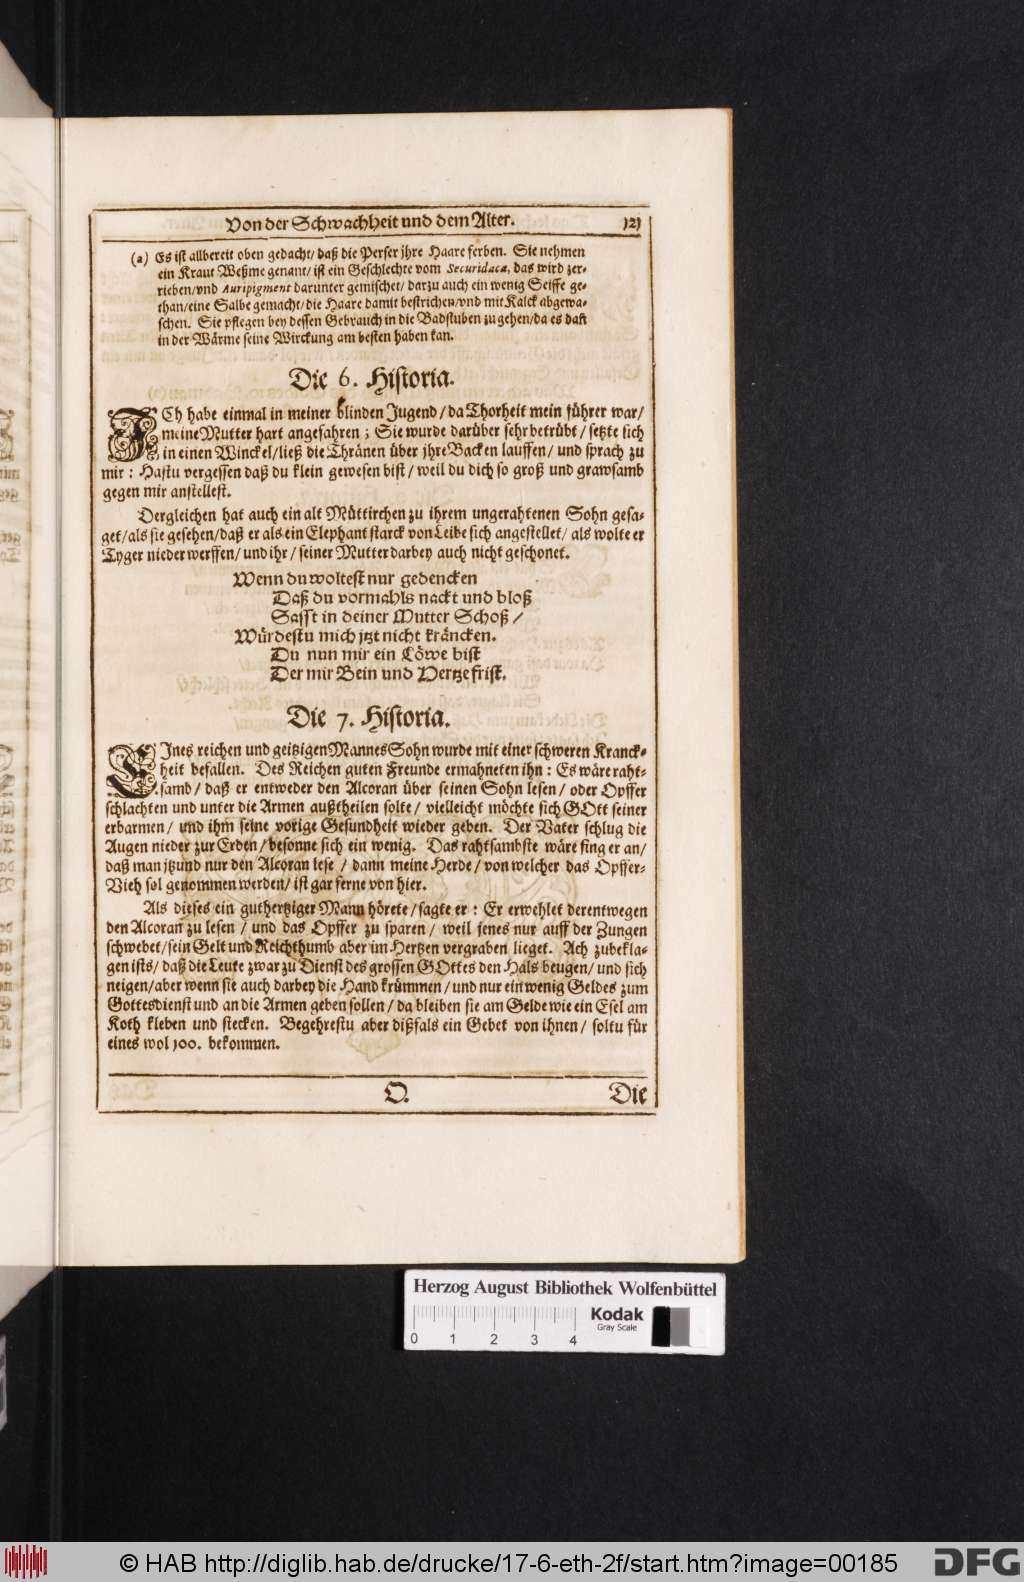 Von der Schwachheit und dem Alter. 121
(a) Es ist allbereit oben gedacht/ daß die Perser jhre Haare ferben. Sie nehmen
ein Kraut Weßme genant/ ist ein Geschlechte vom Securidaca, das wird zer-
rieben/vnd Auripigment darunter gemischet/ darzu auch ein wenig Seiffe ge-
than/eine Salbe gemacht/die Haare damit bestrichen/vnd mit Kalck abgewa-
schen. Sie pflegen bey dessen Gebrauch in die Badstuben zu gehen/da es dañ
in der Wärme seine Wirckung am besten haben kan.
Die 6. Historia.
ICh habe einmal in meiner blinden Jugend/ da Thorheit mein führer war/
meine Mutter hart angefahren; Sie wurde darüber sehr betrübt/ setzte sich
in einen Winckel/ließ die Thränen über jhre Backen lauffen/ und sprach zu
mir: Hastu vergessen daß du klein gewesen bist/ weil du dich so groß und grawsamb
gegen mir anstellest.
Dergleichen hat auch ein alt Müttirchen zu ihrem ungerahtenen Sohn gesa-
get/als sie gesehen/daß er als ein Elephant starck von Leibe sich angestellet/ als wolte er
Tyger nieder werffen/ und ihr/ seiner Mutter darbey auch nicht geschonet.
Wenn du woltest nur gedencken
Daß du vormahls nackt und bloß
Sasst in deiner Mutter Schoß/
Würdestu mich jtzt nicht kräncken.
Du nun mir ein Löwe bist
Der mir Bein und Hertze frist.
Die 7. Historia.
EJnes reichen und geitzigen Mannes Sohn wurde mit einer schweren Kranck-
heit befallen. Des Reichen guten Freunde ermahneten ihn: Es wäre raht-
samb/ daß er entweder den Alcoran über seinen Sohn lesen/ oder Opffer
schlachten und unter die Armen außtheilen solte/ vielleicht möchte sich GOtt seiner
erbarmen/ und ihm seine vorige Gesundheit wieder geben. Der Vater schlug die
Augen nieder zur Erden/ besonne sich ein wenig. Das rahtsambste wäre fing er an/
daß man jtzund nur den Alcoran lese/ dann meine Herde/ von welcher das Opffer-
Vieh sol genommen werden/ ist gar ferne von hier.
Als dieses ein guthertziger Mann hörete/ sagte er: Er erwehlet derentwegen
den Alcoran zu lesen/ und das Opffer zu sparen/ weil jenes nur auff der Zungen
schwebet/sein Gelt und Reichthumb aber im Hertzen vergraben lieget. Ach zubekla-
gen ists/ daß die Leute zwar zu Dienst des grossen GOttes den Hals beugen/ und sich
neigen/aber wenn sie auch darbey die Hand krümmen/ und nur ein wenig Geldes zum
Gottesdienst und an die Armen geben sollen/ da bleiben sie am Gelde wie ein Esel am
Koth kleben und stecken. Begehrestu aber dißfals ein Gebet von ihnen/ soltu für
eines wol 100. bekommen.
Q.
Die
Herzog August Bibliothek Wolfenbüttel
Kodak
Gray Scale
0 1 2 3 4
© HAB http://diglib.hab.de/drucke/17-6-eth-2f/start.htm?image=00185
DFG